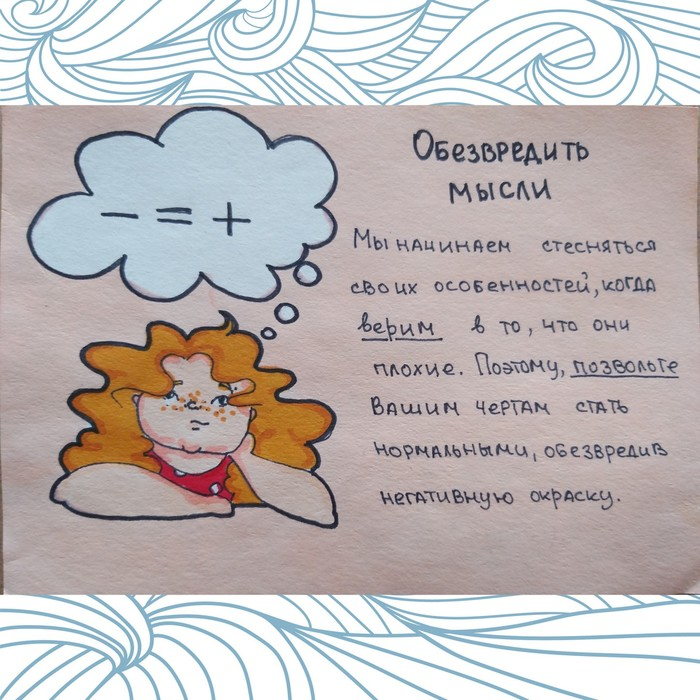 − = +
Обезвредить
мысли
Мы начинаем стесняться
своих особенностей, когда
верим в то, что они
плохие. Поэтому, позвольте
Вашим чертам стать
нормальными, обезвредив
негативную окраску.